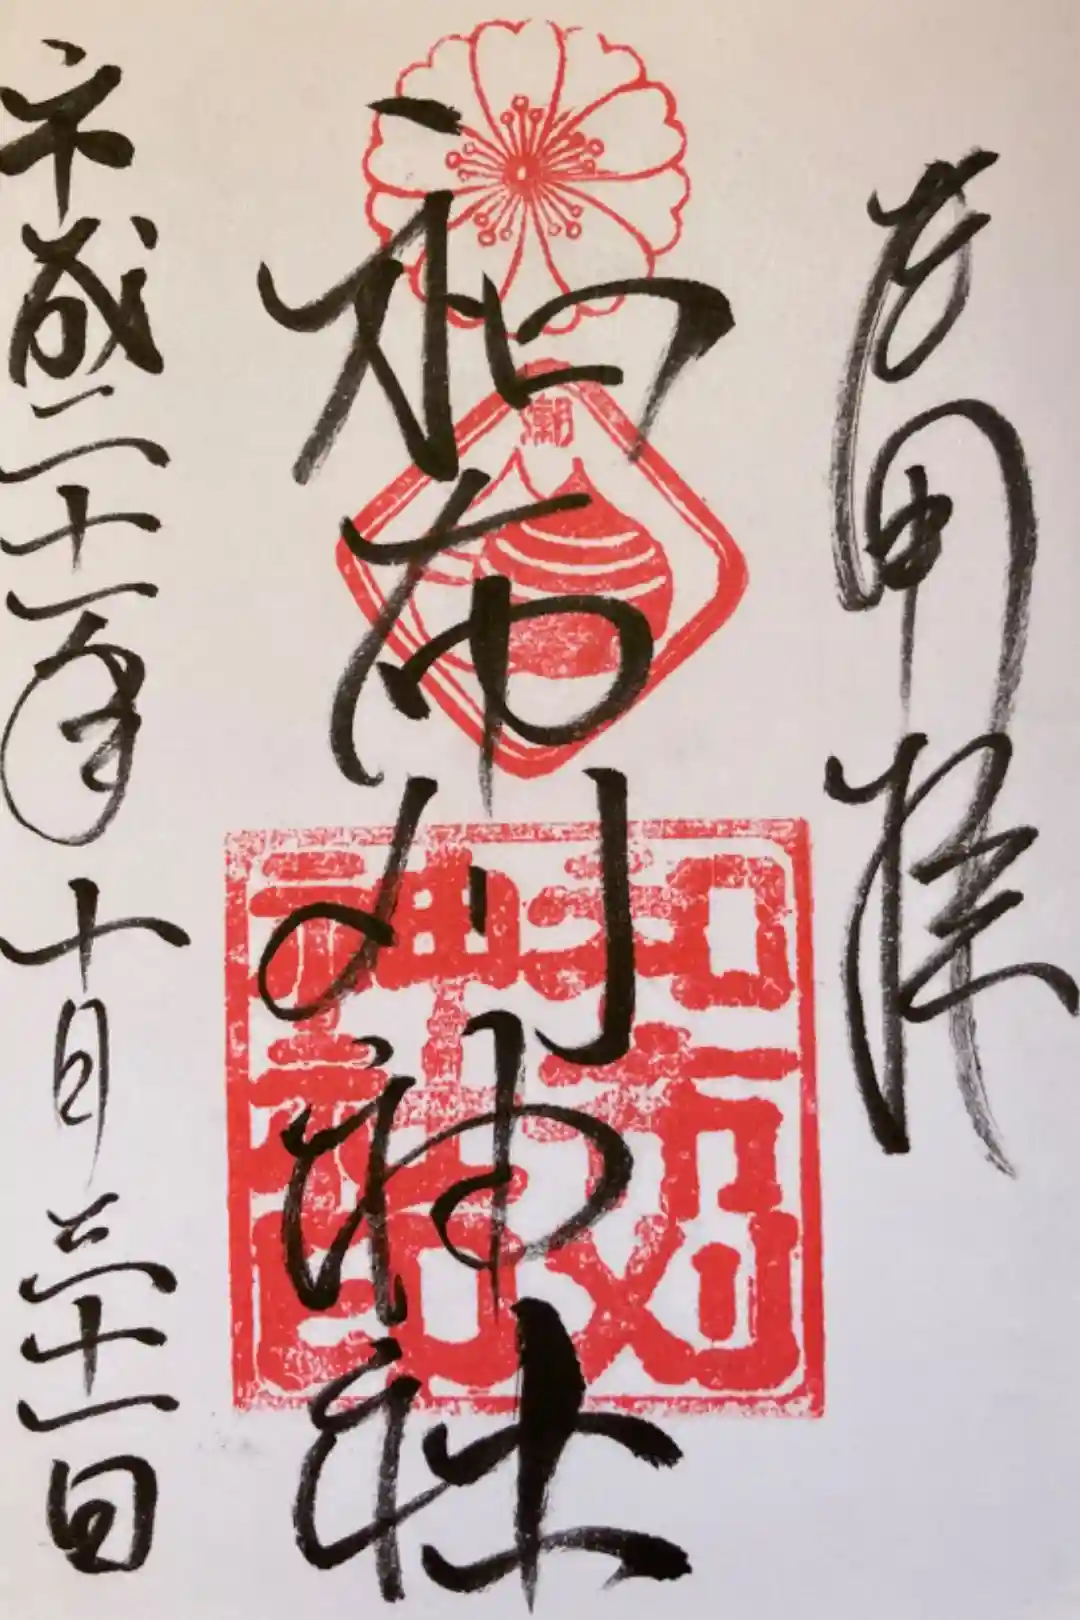 和布刈神社
平成二十一年十月三十一日
潮
和布刈
神社印